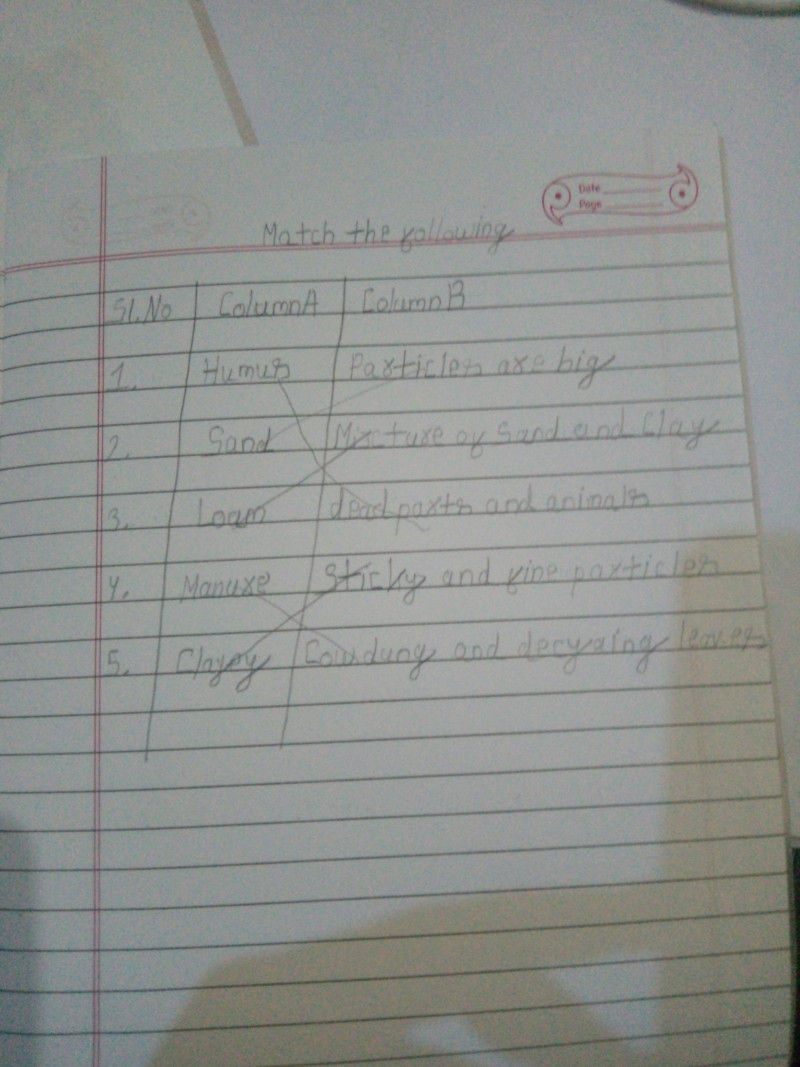 Date
Page
Match the following
Sl.No Column A Column B
1. Humus Particles are big
2. Sand Mixcture of Sand and Clay
3. Loam dead parts and animals
4. Manure Sticky and fine particles
5. Clayey Cowdung and decyaing leaves